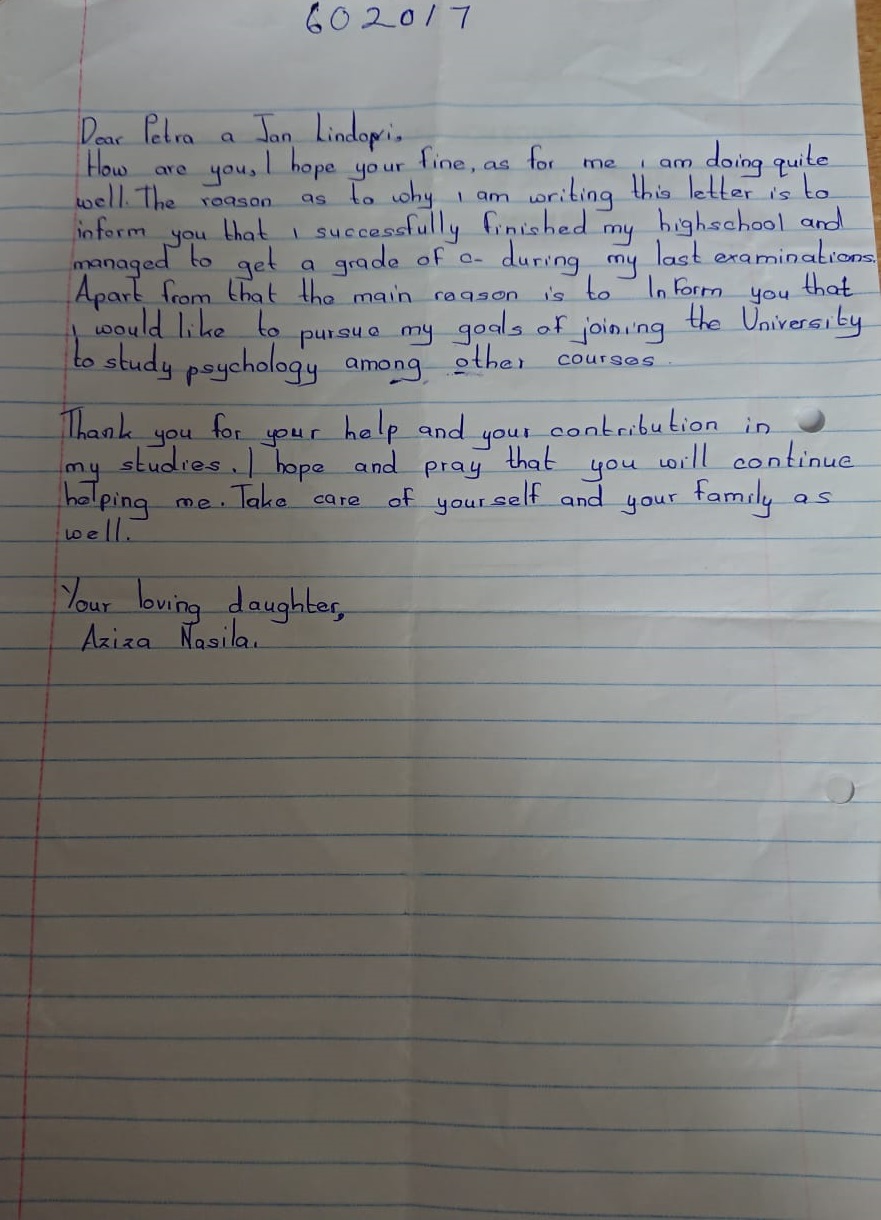 602017
Dear Petra a Jan Lindovi.
How are you, I hope your fine, as for me i am doing quite
well. The reason as to why i am writing this letter is to
inform you that i successfully finished my highschool and
managed to get a grade of c- during my last examinations.
Apart from that the main reason is to Inform you that
i would like to pursue my goals of joining the University
to study psychology among other courses.
Thank you for your help and your contribution in
my studies. I hope and pray that you will continue
helping me. Take care of yourself and your family as
well.
Your loving daughter,
Aziza Nasila.